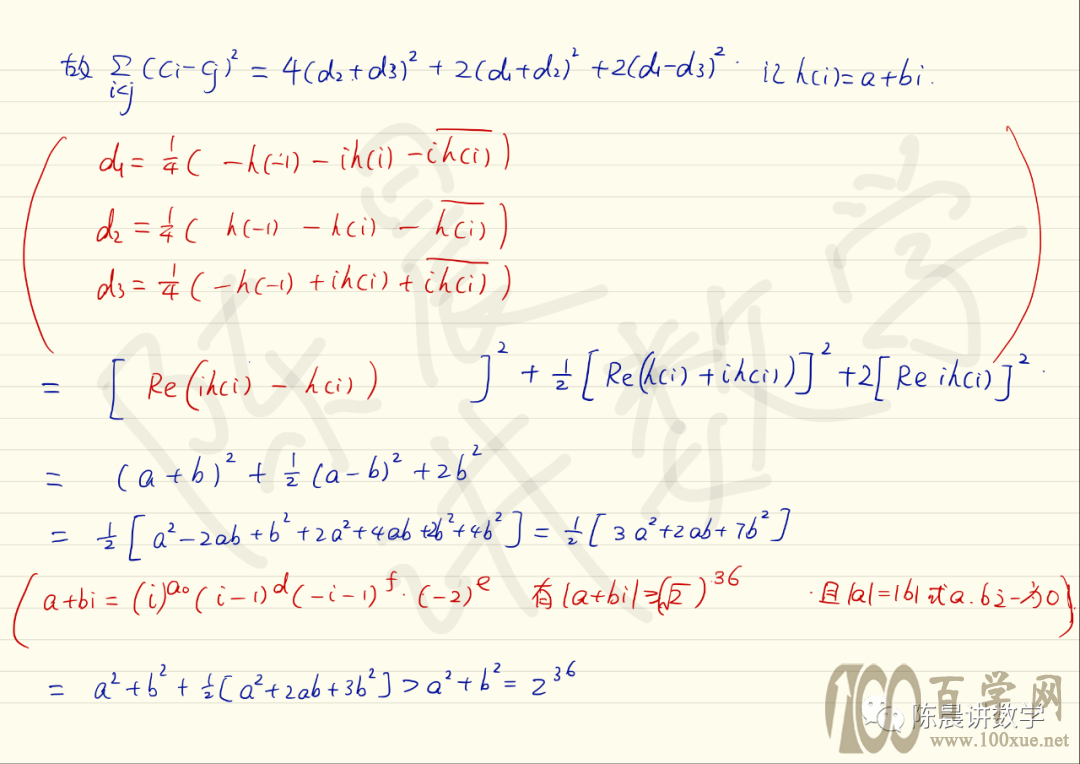 故 Σ_{i<j} (Ci-Cj)² = 4(d2+d3)² + 2(d1+d2)² + 2(d1-d3)². 记 h(i)=a+bi.
d1 = 1/4 ( -h(-1) - ih(i) - \overline{ih(i)} )
d2 = 1/4 ( h(-1) - h(i) - \overline{h(i)} )
d3 = 1/4 ( -h(-1) + ih(i) + \overline{ih(i)} )
= [ Re(ih(i) - h(i)) ]² + 1/2 [ Re(h(i) + ih(i)) ]² + 2 [ Re ih(i) ]².
= (a+b)² + 1/2 (a-b)² + 2b²
= 1/2 [ a²-2ab+b²+2a²+4ab+2b²+4b² ] = 1/2 [ 3a²+2ab+7b² ]
( a+bi = (i)^{a0} (i-1)^d (-i-1)^f · (-2)^e 有 |a+bi| ≥ (√2)^{36} · 且 |a|=|b| 或 a.b之一为0 )
= a²+b² + 1/2 [ a²+2ab+3b² ] > a²+b² = 2^{36}
陈晨讲数学
100百学网
陈晨讲数学
www.100xue.net